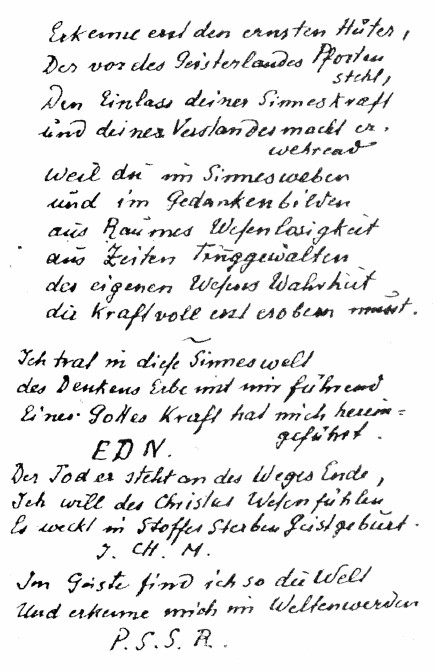 Erkenne erst den ernsten Hüter,
Der vor des Geisterlandes Pforten
steht,
Den Einlass deiner Sinneskraft
und deines Verstandesmacht er-
wehrend
Weil du im Sinnesweben
und im Gedankenbilden
aus Raumes Wesenlosigkeit
aus Zeiten Truggewalten
des eigenen Wesens Wahrheit
die kraftvoll erst erobern musst.
Ich trat in diese Sinneswelt
des Denkens Erbe mit mir führend
Eines Gottes Kraft hat mich herein=
geführt.
EDN.
Der Tod er steht an des Weges Ende,
Ich will des Christus Wesen fühlen
Es weckt in Stoffes Sterben Geistgeburt.
I. CH. M.
Im Geiste find ich so die Welt
Und erkenne mich im Weltenwerden
P. S. S. R.